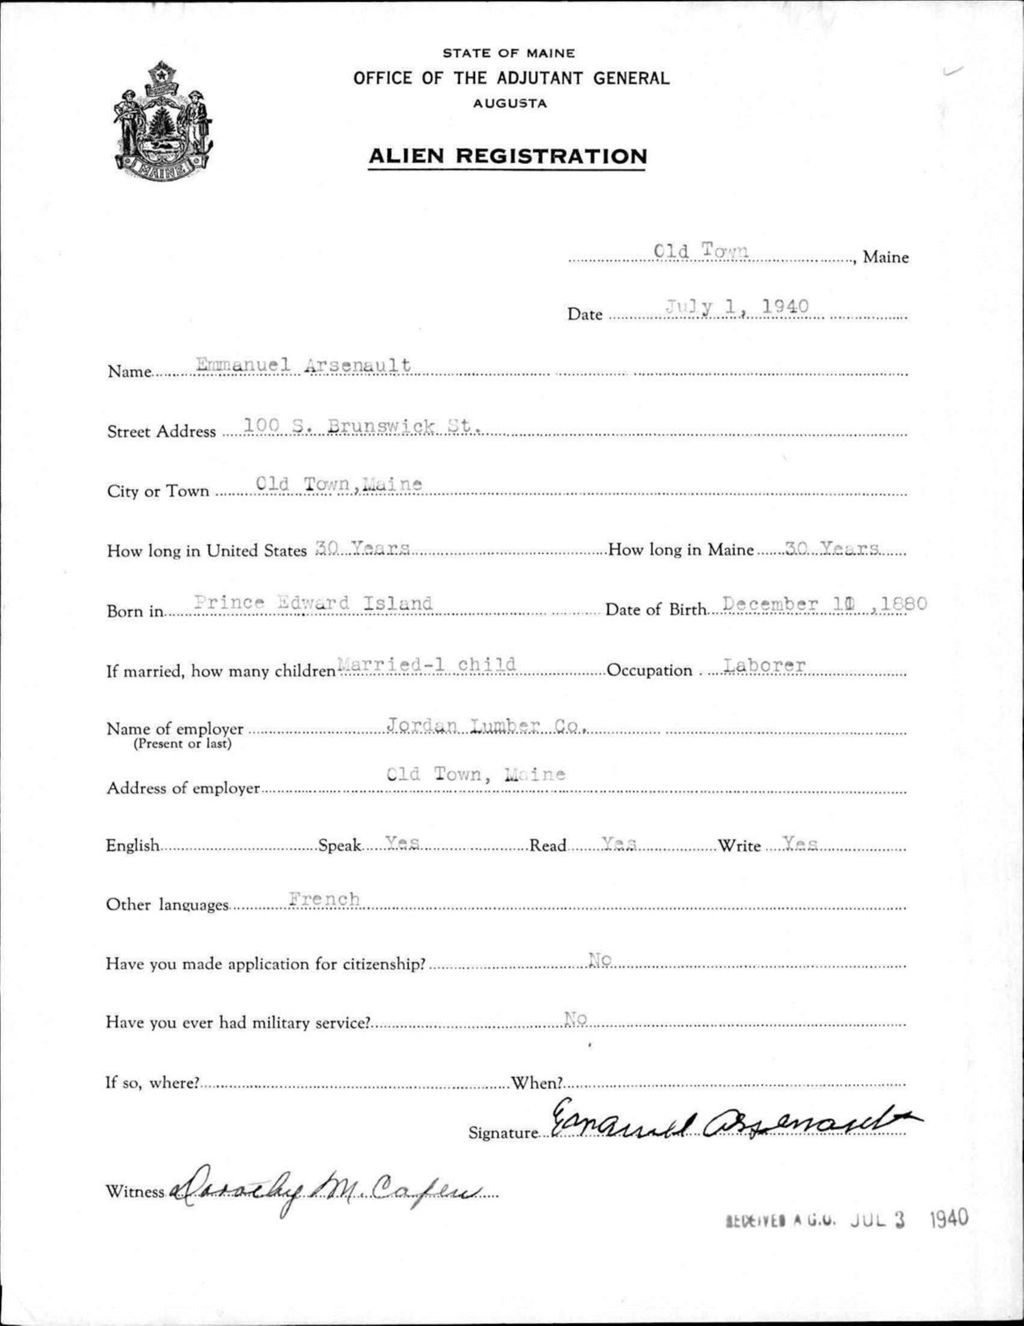 STATE OF MAINE
OFFICE OF THE ADJUTANT GENERAL
AUGUSTA
MAINE
ALIEN REGISTRATION
Old Town, Maine
Date July 1, 1940
Name Emmanuel Arsenault
Street Address 100 S. Brunswick St.
City or Town Old Town,Maine
How long in United States 30 Years How long in Maine 30 Years
Born in Prince Edward Island Date of Birth December ,1880
If married, how many children Married-1 child Occupation Laborer
Name of employer Jordan Lumber Co.
(Present or last)
Address of employer Old Town, Maine
English Speak Yes Read Yes Write Yes
Other languages French
Have you made application for citizenship? No
Have you ever had military service? No
If so, where? When?
Signature Emanuel Arsenault
Witness Dorothy M. Capen
RECEIVED A.G.O. JUL 3 1940